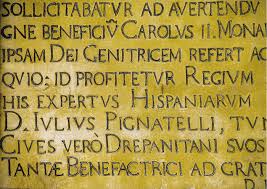 SOLLICITABATVR AD AVERTENDV
GNE BENEFICIṼ CAROLVS II. MONA
IPSAM DEI GENITRICEM REFERT AC
QVIO; ID PROFITETVR REGIVM
HIS EXPERTVS HISPANIARVM
D. IVLIVS PIGNATELLI, TVN
CIVES VERÒ DREPANITANI SVOS
TANTÆ BENEFACTRICI AD GRAT